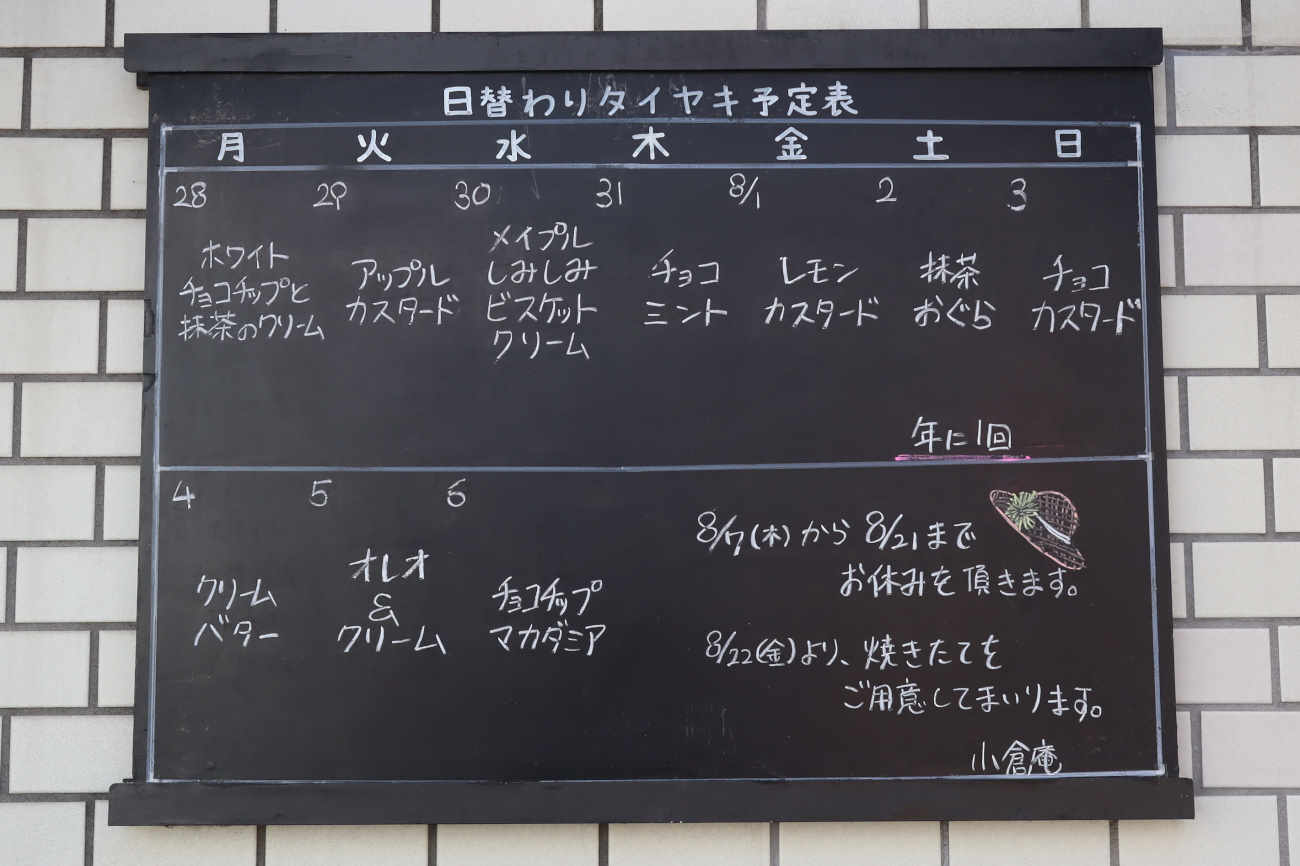 日替わりタイヤキ予定表
月 火 水 木 金 土 日
28
ホワイト
チョコチップと
抹茶のクリーム
29
アップル
カスタード
30
メイプル
しみしみ
ビスケット
クリーム
31
チョコ
ミント
8/1
レモン
カスタード
2
抹茶
おぐら
年に1回
3
チョコ
カスタード
4
クリーム
バター
5
オレオ
&
クリーム
6
チョコチップ
マカダミア
8/7(木)から8/21まで
お休みを頂きます。
8/22(金)より、焼きたてを
ご用意してまいります。
小倉庵